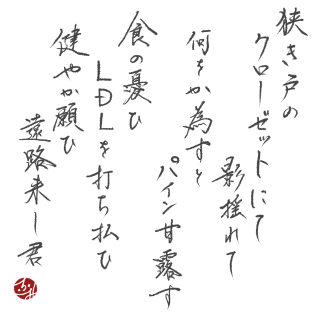 狭き戸の
クローゼットにて
影揺れて
何をか為すと
パイン甘露す
食の憂ひ
LDLを打ち払ひ
健やか願ひ
遠路来し君